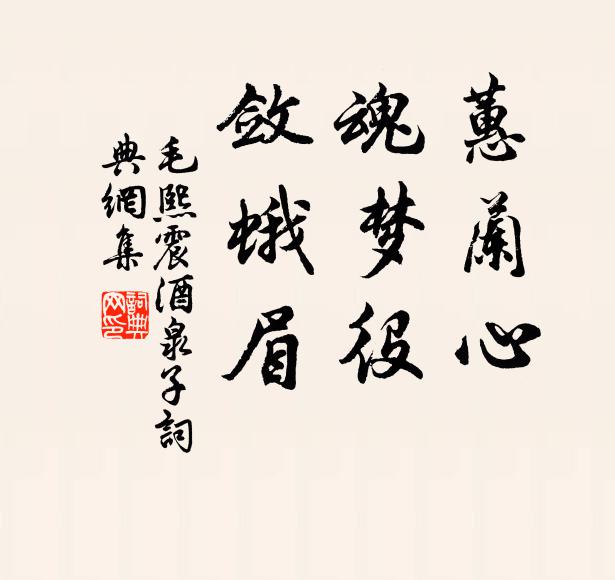 蕙蘭心
魂梦役
斂蛾眉
毛熙震酒泉子詞
典網集
詞典
网印